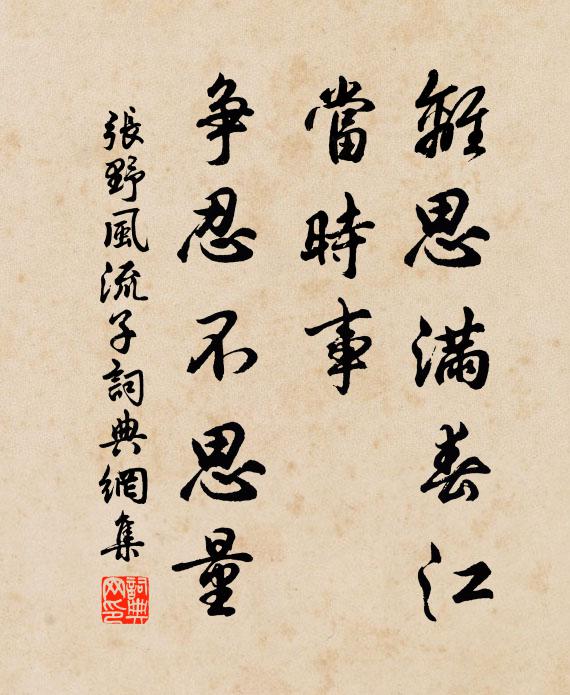 離思滿春江
當時事
爭忍不思量
張野風流子詞典網集
詞典網印